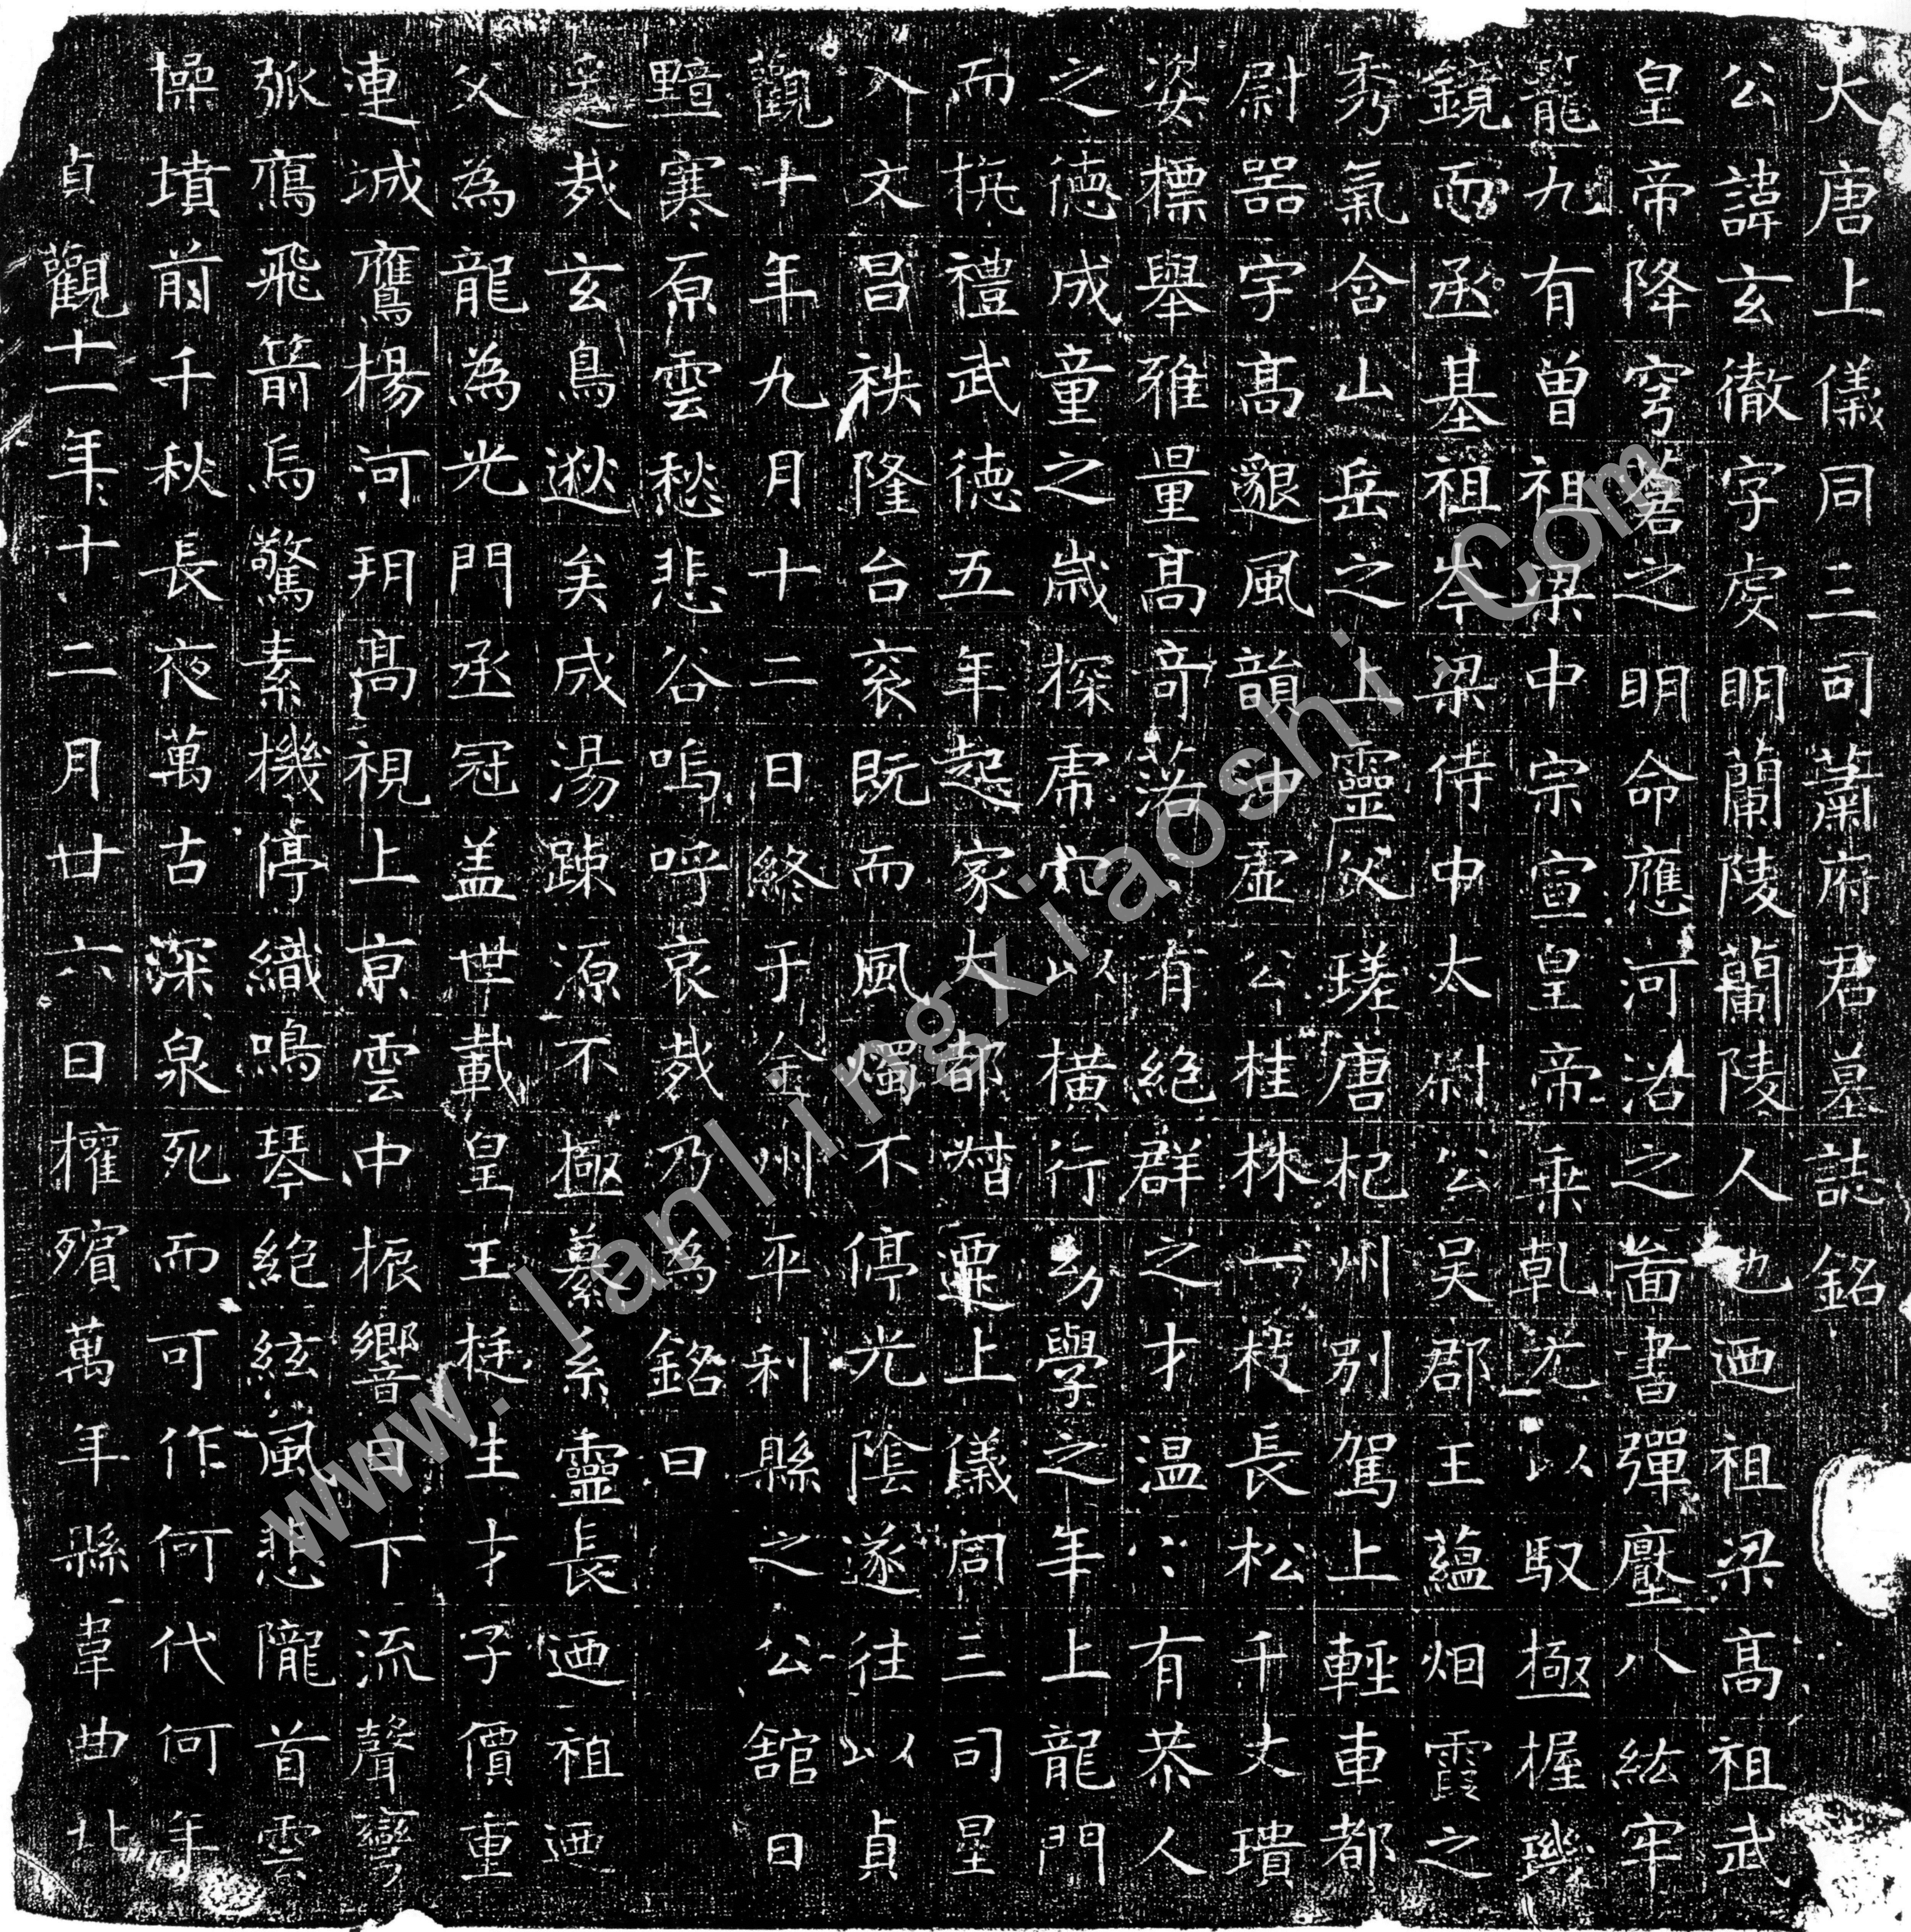 大唐上儀同三司蕭府君墓誌銘
公諱玄徹字虔明蘭陵蘭陵人也迺祖梁高祖武
皇帝降穹蒼之明命應河洛之啚書彈壓八紘牢
籠九有曾祖梁中宗宣皇帝乘乾元以馭極握璣
鏡而丞基祖岑梁侍中太尉公吳郡王蘊烟霞之
秀氣含山岳之上靈父瑳唐杞州別駕上輕車都
尉器宇高邈風韻沖虛公桂株一枝長松千丈瓌
姿標舉雅量高奇落〻有絕群之才温〻有恭人
之德成童之歲探虎穴以橫行幼學之年上龍門
而摭禮武德五年起家大都督遷上儀同三司星
入文昌秩隆台衮既而風燭不停光陰遂往以貞
觀十年九月十二日終于金州平利縣之公舘日
黯寒原雲愁悲谷嗚呼哀哉乃為銘曰
邈哉玄鳥逖矣成湯踈源不極纂系靈長迺祖迺
父為龍為光門丞冠盖世載皇王挺生才子價重
連城鷹楊河朔高視上京雲中振響日下流聲彎
弧鴈飛箭烏驚素機停織鳴琴絕絃風悲隴首雲
愫墳前千秋長夜萬古深泉死而可作何代何年
貞觀十一年十二月廿六日權殯萬年縣韋曲北
www.lanlingxiaoshi.Com